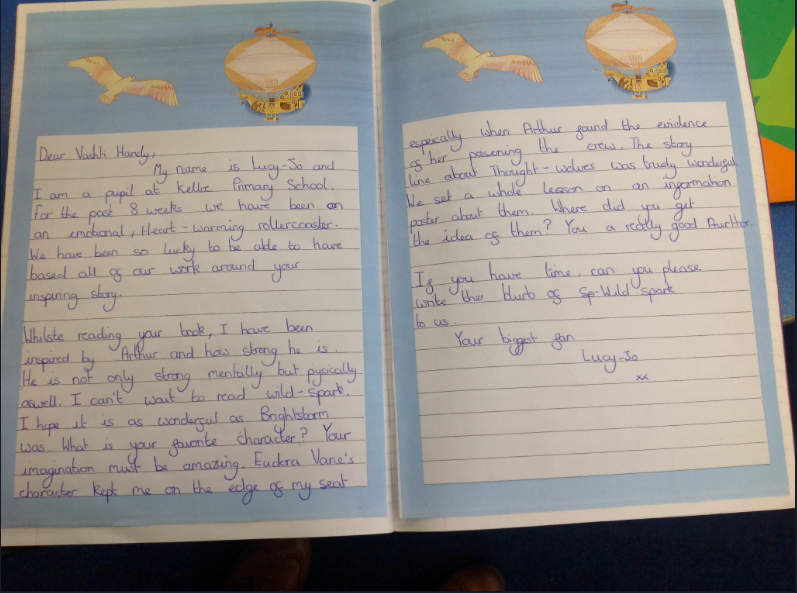 Dear Vashti Hardy,
My name is Lucy-Jo and
I am a pupil at Kelloe Primary School.
For the past 8 weeks we have been on
an emotional, Heart-warming rollercoaster.
We have been so lucky to be able to have
based all of our work around your
inspiring story.
Whilste reading your book, I have been
inspired by Arthur and how strong he is.
He is not only strong mentally but pysically
aswell. I can't wait to read wild-spark.
I hope it is as wonderful as Brightstorm
was. What is your favorite character? Your
imagination must be amazing. Eudora Vane's
character kept me on the edge of my seat
especially when Arthur found the evidence
of her poisening the crew. The story
line about Thought-wolves was truely wonderful
We set a whole lesson on an information
poster about them. Where did you get
the idea of them? You a really good Aurthor.
If you have time, can you please
write the blurb of Sp-Wild spark
to us.
Your biggest fan
Lucy-Jo
xx